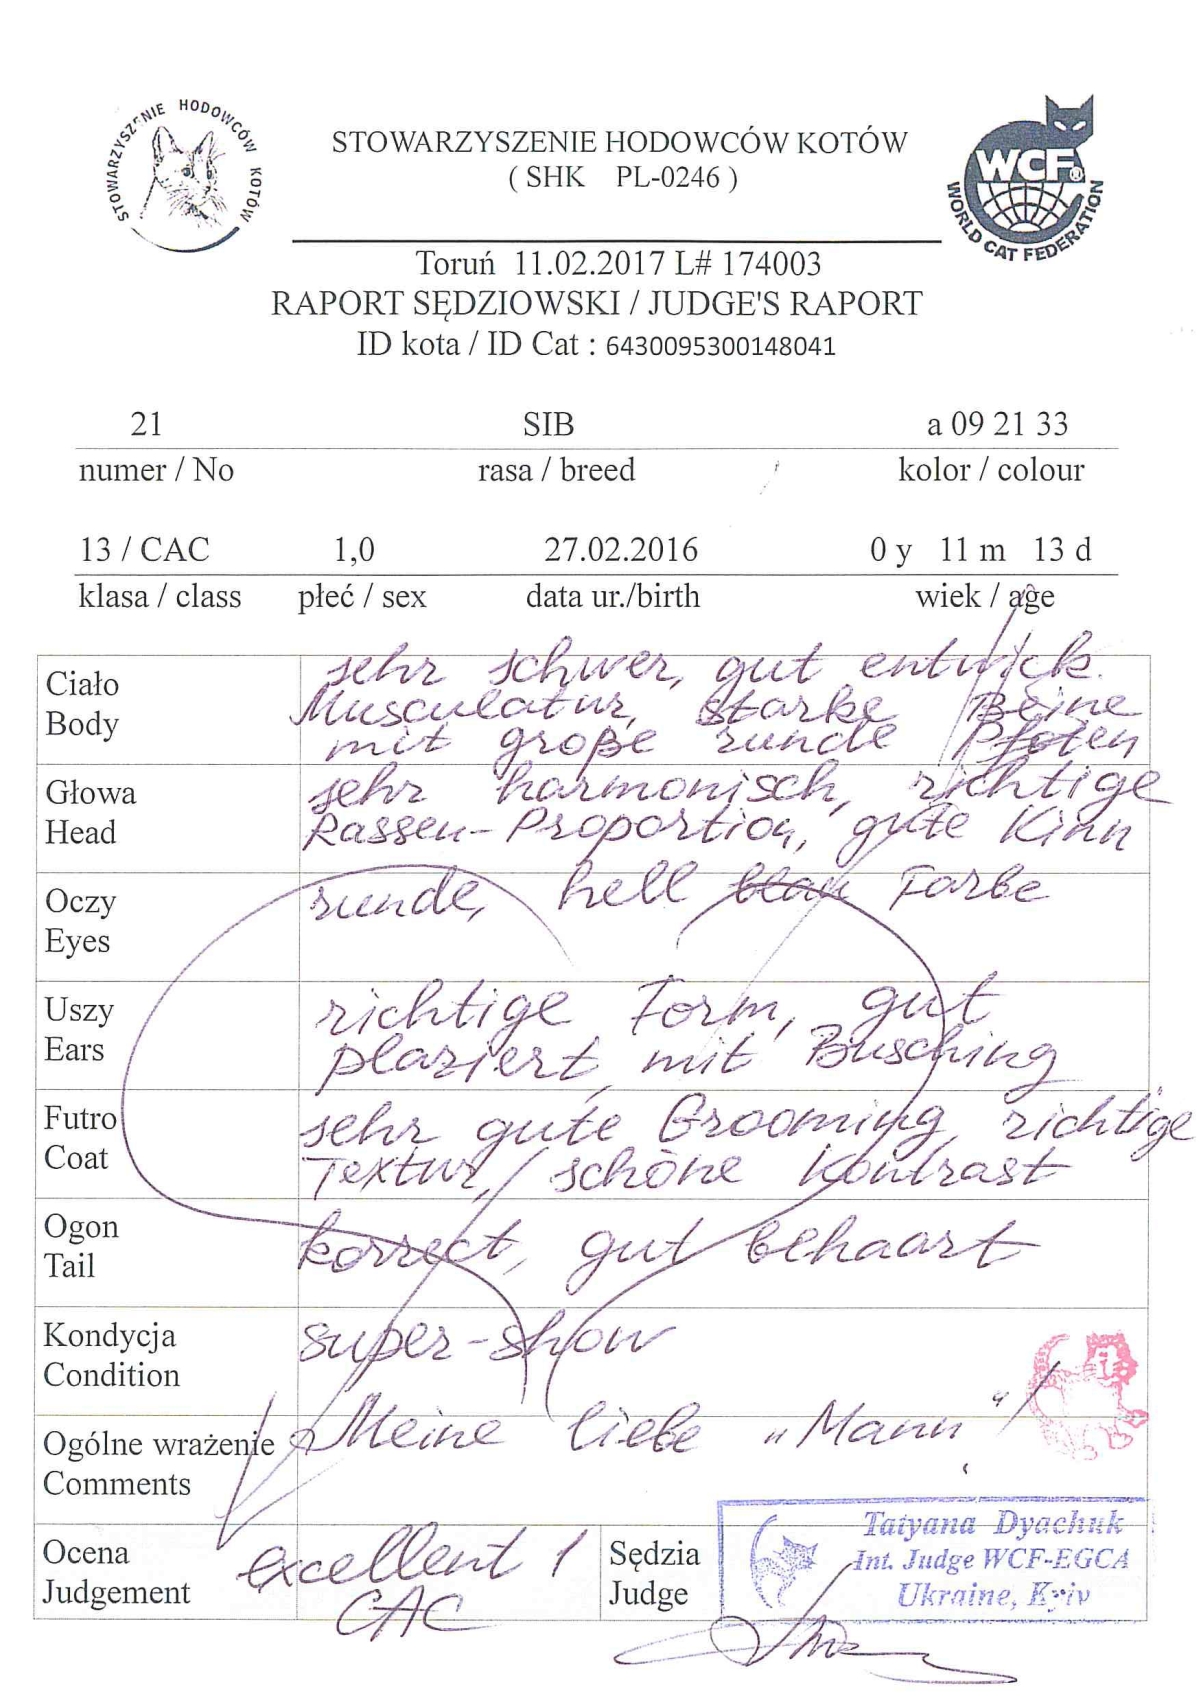 STOWARZYSZENIE HODOWCÓW KOTÓW
STOWARZYSZENIE HODOWCÓW KOTÓW
( SHK PL-0246 )
WCF®
WORLD CAT FEDERATION
Toruń 11.02.2017 L# 174003
RAPORT SĘDZIOWSKI / JUDGE'S RAPORT
ID kota / ID Cat : 6430095300148041
21 SIB a 09 21 33
numer / No rasa / breed kolor / colour
13 / CAC 1,0 27.02.2016 0 y 11 m 13 d
klasa / class płeć / sex data ur./birth wiek / age
Ciało
Body
sehr schwer, gut entwick.
Musculatur, starke Beine
mit große runde Pfoten
Głowa
Head
sehr harmonisch, richtige
Rassen-Proportion, gute Kinn
Oczy
Eyes
runde, hell blau Farbe
Uszy
Ears
richtige Form, gut
plaziert, mit Busching
Futro
Coat
sehr gute Grooming, richtige
Textur, schöne Kontrast
Ogon
Tail
korrect, gut behaart
Kondycja
Condition
super-show
Ogólne wrażenie
Comments
Meine liebe "Mann"!
Ocena
Judgement
excellent 1
CAC
Sędzia
Judge
Tatyana Dyachuk
Int. Judge WCF-EGCA
Ukraine, Kyiv